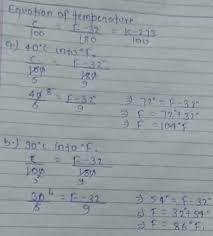 Equation of temperature
C/100 = F-32/180 = K-273/100
a) 40°C into °F.
C/100 5 = F-32/180 9
40 8/5 = F-32°/9 ⇒ 72° = F-32°
⇒ F = 72°+32°
⇒ F = 104°F
b) 30°C into °F.
C/100 5 = F-32/180 9
30 6/5 = F-32/9 ⇒ 54° = F-32°
⇒ F = 32+54°
⇒ F = 86°F